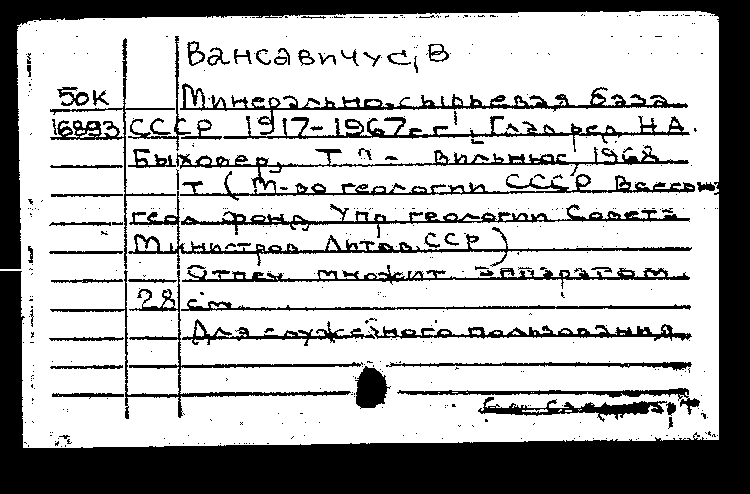 Вансавичус, В
50К Минерально-сырьевая база
16893 СССР 1917-1967 г.г. [Глав. ред. Н.А.
Быховер, Т. - Вильнюс, 1968
т (М-во геологии СССР Всесоюз
геол фонд, Упр геологии Совета
Министров Литов. ССР)
Отпеч множит аппаратом.
28 cm
Для служебного пользования